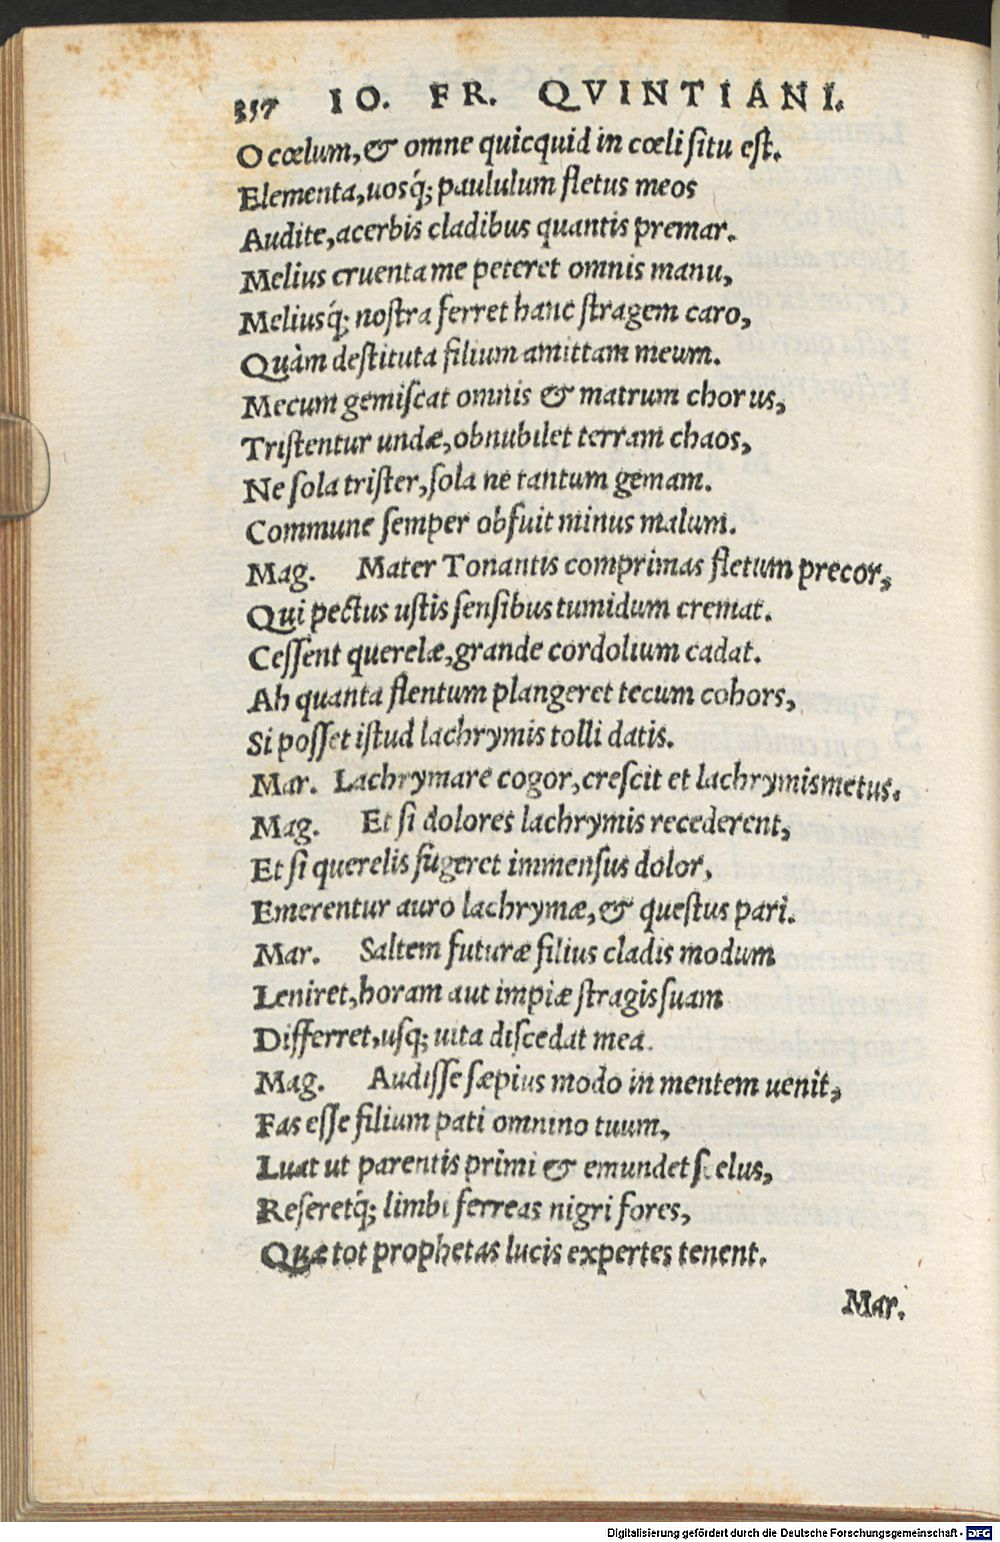 357 IO. FR. QVINTIANI.
O cœlum, & omne quicquid in cœli situ est.
Elementa, uosq́; paululum fletus meos
Audite, acerbis cladibus quantis premar.
Melius cruenta me peteret omnis manu,
Meliusq́; nostra ferret hanc stragem caro,
Quàm destituta filium amittam meum.
Mecum gemiscat omnis & matrum chorus,
Tristentur undæ, obnubilet terram chaos,
Ne sola trister, sola ne tantum gemam.
Commune semper obfuit minus malum.
Mag. Mater Tonantis comprimas fletum precor,
Qui pectus ustis sensibus tumidum cremat.
Cessent querelæ, grande cordolium cadat.
Ah quanta flentum plangeret tecum cohors,
Si posset istud lachrymis tolli datis.
Mar. Lachrymare cogor, crescit et lachrymis metus.
Mag. Et si dolores lachrymis recederent,
Et si querelis fugeret immensus dolor,
Emerentur auro lachrymæ, & questus pari.
Mar. Saltem futuræ filius cladis modum
Leniret, horam aut impiæ stragis suam
Differret, usq; uita discedat mea.
Mag. Audisse sæpius modo in mentem uenit,
Fas esse filium pati omnino tuum,
Luat ut parentis primi & emundet scelus,
Reseretq́; limbi ferreas nigri fores,
Quæ tot prophetas lucis expertes tenent.
Mar.
Digitalisierung gefördert durch die Deutsche Forschungsgemeinschaft - DFG